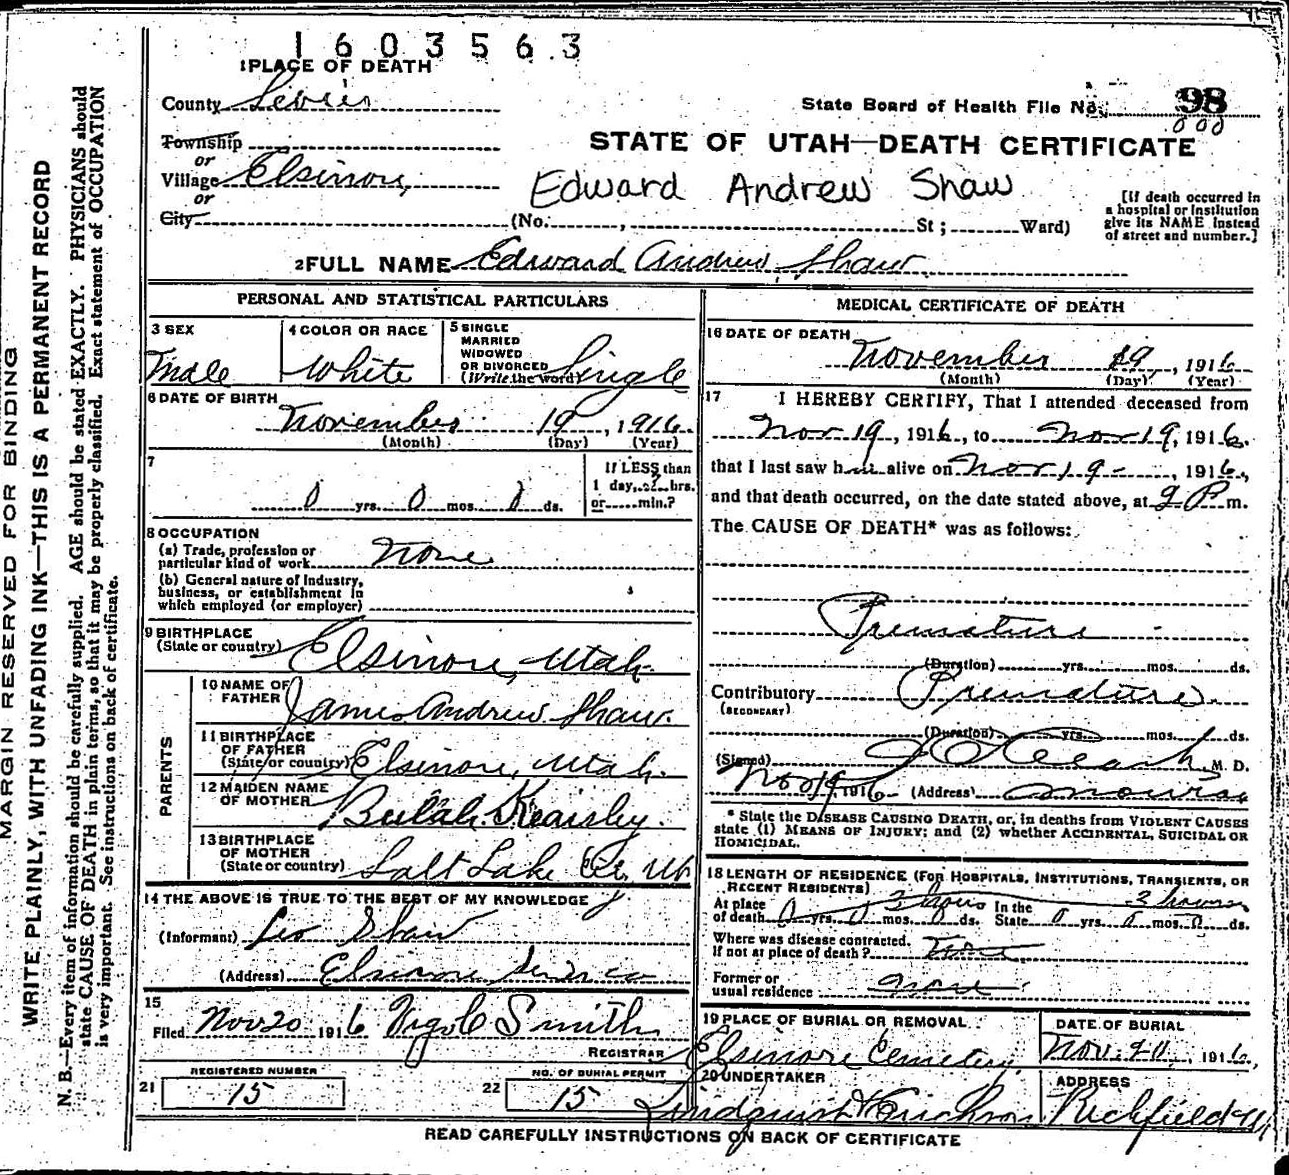 1603563
1 PLACE OF DEATH
County Sevier
State Board of Health File No. 98
000
Township
or
Village Elsinore,
or
City
STATE OF UTAH—DEATH CERTIFICATE
Edward Andrew Shaw
(No. , St; Ward)
[If death occurred in
a hospital or institution
give its NAME instead
of street and number.]
2 FULL NAME Edward Andrew Shaw
PERSONAL AND STATISTICAL PARTICULARS
3 SEX
Male
4 COLOR OR RACE
White
5 SINGLE
MARRIED
WIDOWED
OR DIVORCED
(Write the word) Single
6 DATE OF BIRTH
November 19, 1916
(Month) (Day) (Year)
7
0 yrs. 0 mos. 0 ds.
If LESS than
1 day, hrs.
or min.?
8 OCCUPATION
(a) Trade, profession or
particular kind of work None
(b) General nature of Industry,
business, or establishment in
which employed (or employer)
9 BIRTHPLACE
(State or country) Elsinore, Utah
PARENTS
10 NAME OF
FATHER James Andrew Shaw
11 BIRTHPLACE
OF FATHER
(State or country) Elsinore, Utah.
12 MAIDEN NAME
OF MOTHER Beulah Kearsley.
13 BIRTHPLACE
OF MOTHER
(State or country) Salt Lake City, Ut
14 THE ABOVE IS TRUE TO THE BEST OF MY KNOWLEDGE
(Informant) Leo Shaw
(Address) Elsinore Sevier co
15
Filed Nov 20 1916 Smith
REGISTRAR
REGISTERED NUMBER
21 15
NO. OF BURIAL PERMIT
22 15
MEDICAL CERTIFICATE OF DEATH
16 DATE OF DEATH
November 19, 1916
(Month) (Day) (Year)
17 I HEREBY CERTIFY, That I attended deceased from
Nov 19, 1916, to Nov 19, 1916.
that I last saw him alive on Nov 19-, 1916,
and that death occurred, on the date stated above, at 9 P m.
The CAUSE OF DEATH* was as follows:
Premature
(Duration) yrs. mos. ds.
Contributory Premature
(SECONDARY)
(Duration) yrs. mos. ds.
(Signed) M. D.
Nov 19 1916 (Address) Monroe
* State the DISEASE CAUSING DEATH, or, in deaths from VIOLENT CAUSES
state (1) MEANS OF INJURY; and (2) whether ACCIDENTAL, SUICIDAL OR
HOMICIDAL.
18 LENGTH OF RESIDENCE (FOR HOSPITALS, INSTITUTIONS, TRANSIENTS, OR
RECENT RESIDENTS)
At place 3 hours In the 3 hours
of death 0 yrs. 0 mos. 0 ds. State 0 yrs. 0 mos. 0 ds.
Where was disease contracted.
If not at place of death? None
Former or
usual residence None
19 PLACE OF BURIAL OR REMOVAL
Elsinore Cemetery
DATE OF BURIAL
Nov. 20, 1916
20 UNDERTAKER
Lindquist & Erickson
ADDRESS
Richfield Ut
READ CAREFULLY INSTRUCTIONS ON BACK OF CERTIFICATE
MARGIN RESERVED FOR BINDING
WRITE PLAINLY, WITH UNFADING INK—THIS IS A PERMANENT RECORD
N. B.—Every item of information should be carefully supplied. AGE should be stated EXACTLY. PHYSICIANS should
state CAUSE OF DEATH in plain terms, so that it may be properly classified. Exact statement of OCCUPATION
is very important. See instructions on back of certificate.